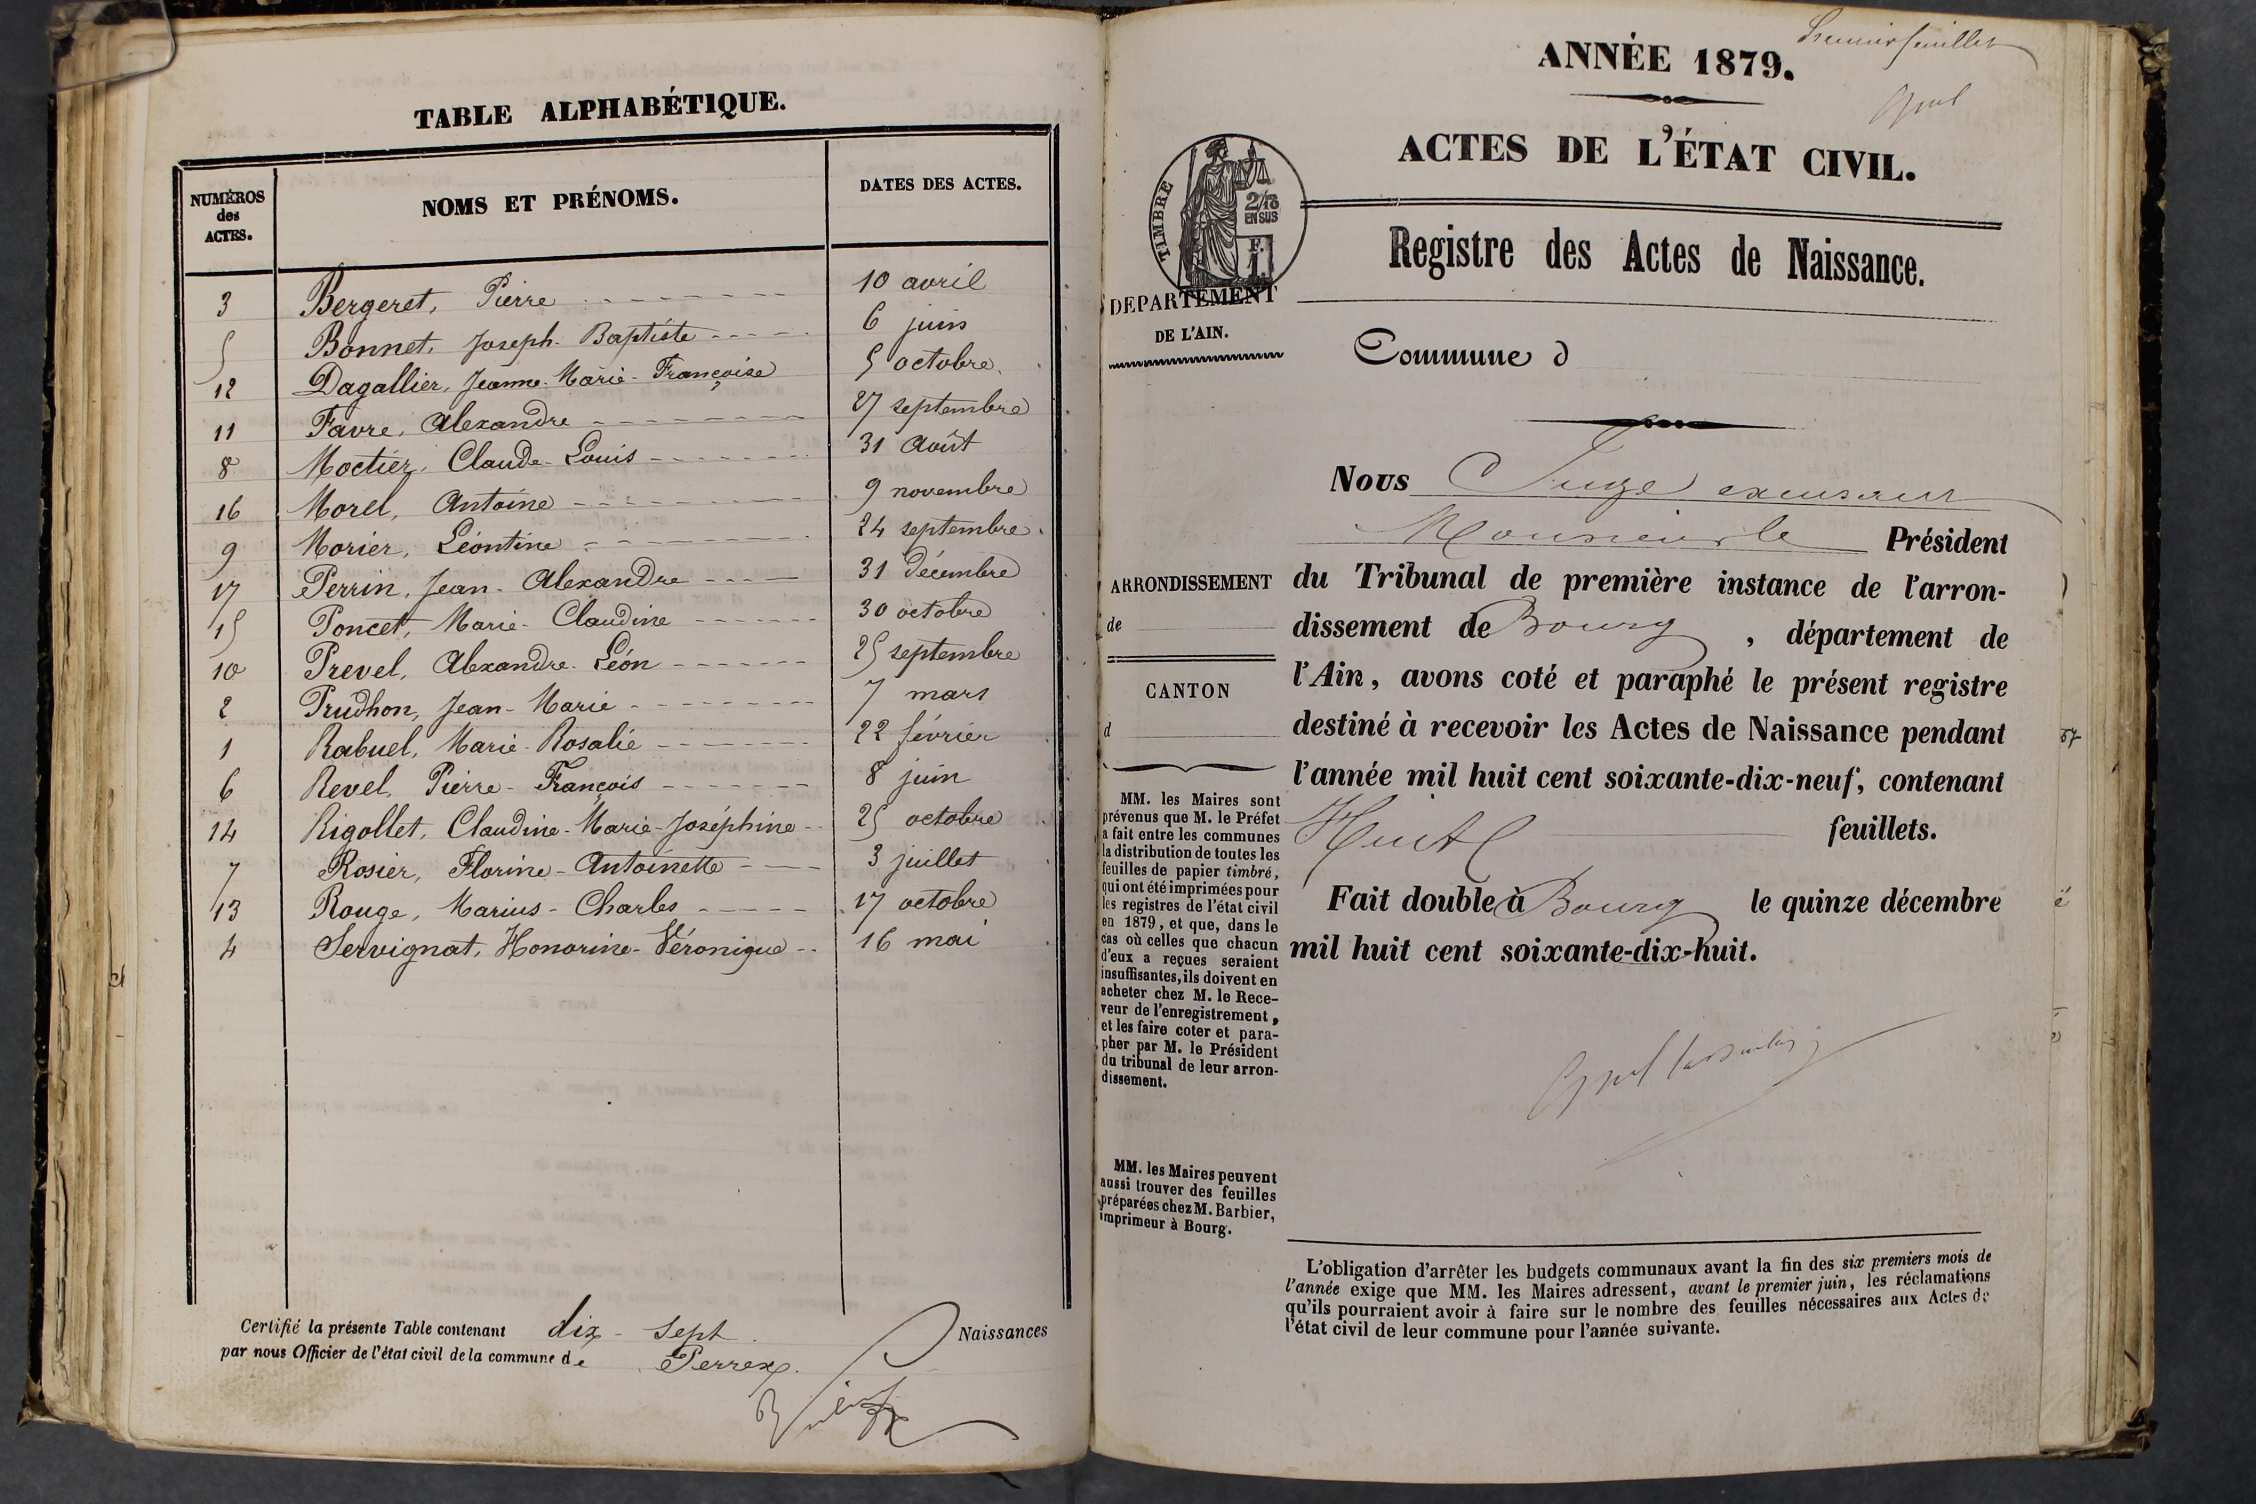 TABLE ALPHABÉTIQUE.
NUMÉROS des ACTES. NOMS ET PRÉNOMS. DATES DES ACTES.
3 Bergeret, Pierre 10 avril
5 Bonnet, Joseph-Baptiste 6 juin
12 Dagallier, Jeanne-Marie-Françoise 5 octobre
11 Favre, Alexandre 27 septembre
8 Moctier, Claude-Louis 31 Août
16 Morel, Antoine 9 novembre
9 Morier, Léontine 24 septembre
17 Perrin, Jean-Alexandre 31 décembre
15 Poncet, Marie-Claudine 30 octobre
10 Prevel, Alexandre-Léon 25 septembre
2 Prudhon, Jean-Marie 7 mars
1 Rabuel, Marie-Rosalie 22 février
6 Revel, Pierre-François 8 juin
14 Rigollet, Claudine-Marie-Joséphine 25 octobre
7 Rosier, Florine-Antoinette 3 juillet
13 Rouge, Marius-Charles 17 octobre
4 Servignat, Honorine-Véronique 16 mai
Certifié la présente Table contenant dix-sept Naissances
par nous Officier de l'état civil de la commune de Perrex.
Premier feuillet
ANNÉE 1879.
ACTES DE L'ÉTAT CIVIL.
TIMBRE
2/10
EN SUS
F.
1
Registre des Actes de Naissance.
DEPARTEMENT
DE L'AIN.
Commune d
Nous Juge
Monsieur le Président
ARRONDISSEMENT
de
CANTON
d
du Tribunal de première instance de l'arron-
dissement de Bourg, département de
l'Ain, avons coté et paraphé le présent registre
destiné à recevoir les Actes de Naissance pendant
l'année mil huit cent soixante-dix-neuf, contenant
Huit feuillets.
Fait double à Bourg le quinze décembre
mil huit cent soixante-dix-huit.
MM. les Maires sont
prévenus que M. le Préfet
a fait entre les communes
la distribution de toutes les
feuilles de papier timbré,
qui ont été imprimées pour
les registres de l'état civil
en 1879, et que, dans le
cas où celles que chacun
d'eux a reçues seraient
insuffisantes, ils doivent en
acheter chez M. le Rece-
veur de l'enregistrement,
et les faire coter et para-
pher par M. le Président
du tribunal de leur arron-
dissement.
MM. les Maires peuvent
aussi trouver des feuilles
préparées chez M. Barbier,
imprimeur à Bourg.
L'obligation d'arrêter les budgets communaux avant la fin des six premiers mois de
l'année exige que MM. les Maires adressent, avant le premier juin, les réclamations
qu'ils pourraient avoir à faire sur le nombre des feuilles nécessaires aux Actes de
l'état civil de leur commune pour l'année suivante.